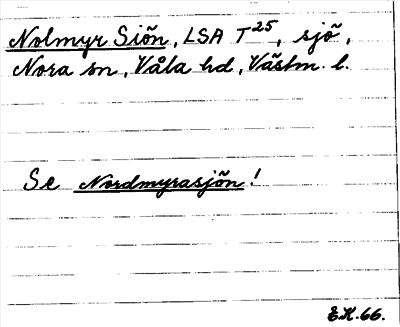 Nolmyr Siön, LSA T25, sjö,
Nora sn, Våla hd, Västm. l.
Se Nordmyrasjön!
E.H.66.